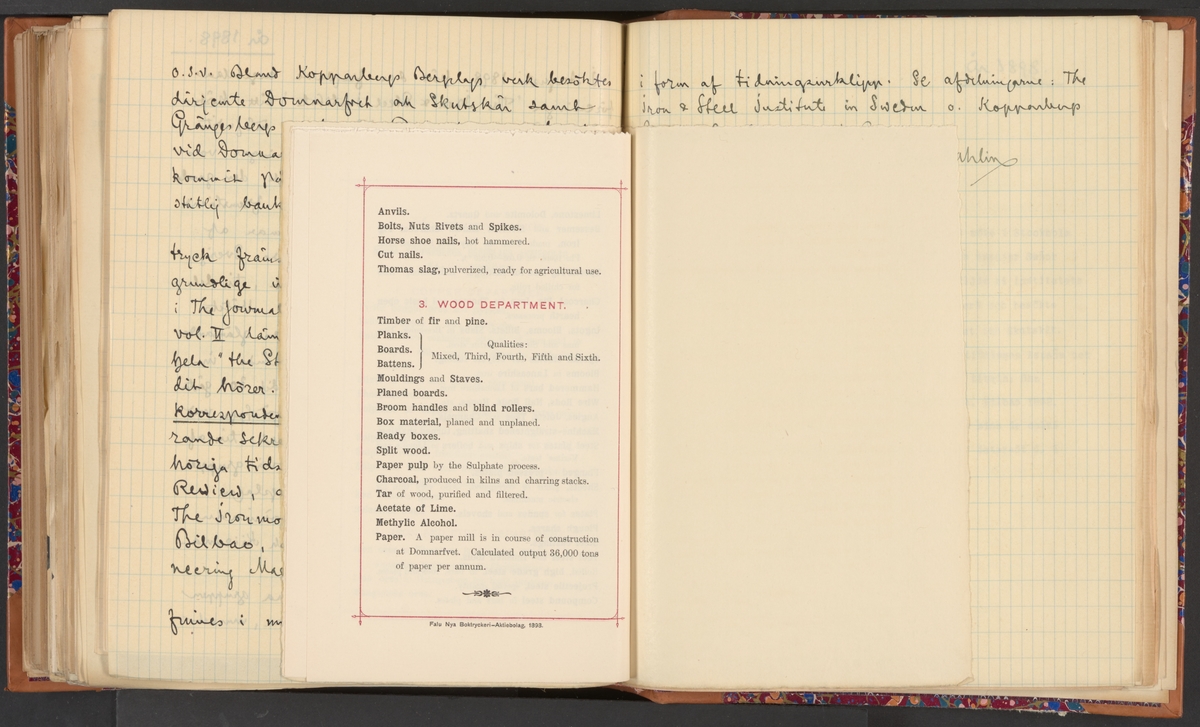 o.s.v. Bland Kopparbergs Bergslags verk besöktes
Domnarfvet och Skutskär samt
Grängesbergs
vid Domna
kommit på
ståtlig bank
tryck främ
grundlige
i The Journal
vol. II läm
hela "the St
dit hörer.
korresponde
rande Sekre
höriga tids
Review,
The Ironmo
Bilbao,
neering Mag
finnes i
Anvils.
Bolts, Nuts Rivets and Spikes.
Horse shoe nails, hot hammered.
Cut nails.
Thomas slag, pulverized, ready for agricultural use.
3. WOOD DEPARTMENT.
Timber of fir and pine.
Planks.
Boards.
Battens.
Qualities:
Mixed, Third, Fourth, Fifth and Sixth.
Mouldings and Staves.
Planed boards.
Broom handles and blind rollers.
Box material, planed and unplaned.
Ready boxes.
Split wood.
Paper pulp by the Sulphate process.
Charcoal, produced in kilns and charring stacks.
Tar of wood, purified and filtered.
Acetate of Lime.
Methylic Alcohol.
Paper. A paper mill is in course of construction
at Domnarfvet. Calculated output 36,000 tons
of paper per annum.
Falu Nya Boktryckeri-Aktiebolag, 1898.
i form af tidningsurklipp. Se afdelningarne: The
Iron & Steel Institute in Sweden o. Kopparbergs
ahlin